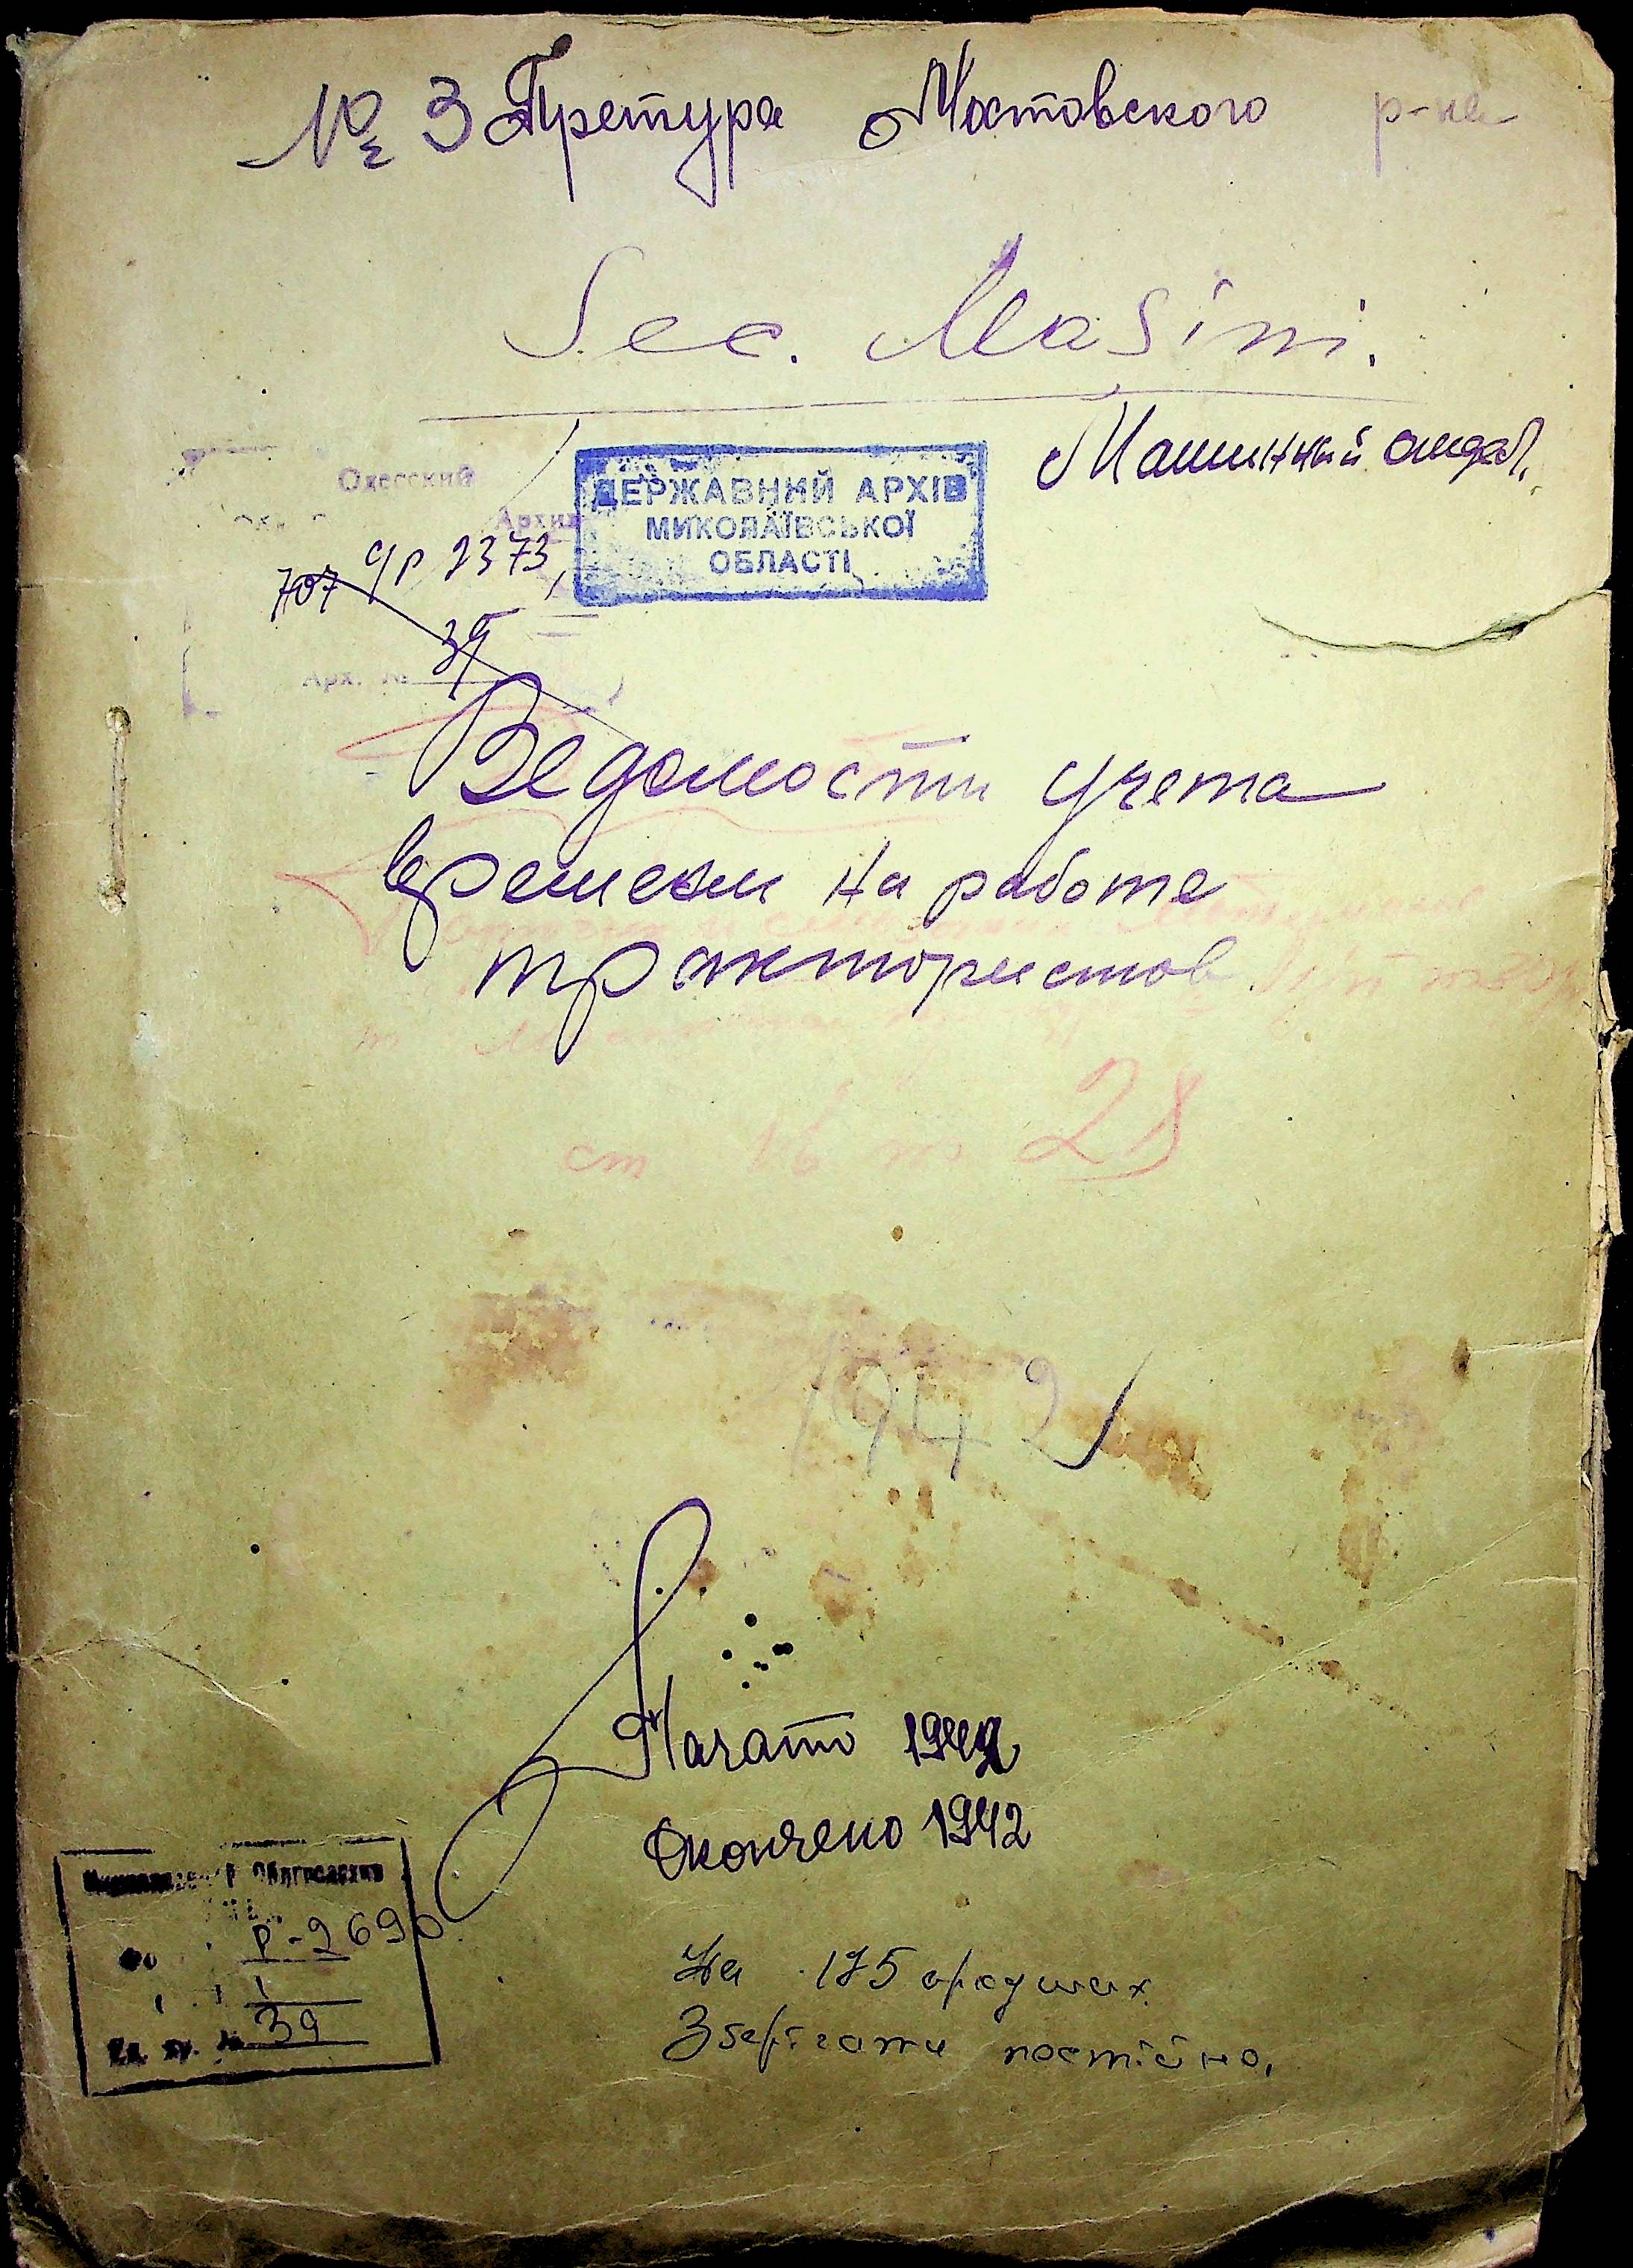 № 3 Претура Мостовского р-на
Sec. Masini.
Машинный отдел.
Одесский
Архив
ДЕРЖАВНИЙ АРХІВ
МИКОЛАЇВСЬКОЇ
ОБЛАСТІ
707 ф р 2373
39
Арх. №
Ведомости учета
времени на работе
трактористов
от 16 до 28
1942
Начато 1942
Окончено 1942
Облгосархив
Р-2690
1
Ед. хр. № 39
На 175 аркушах.
Зберігати постійно.